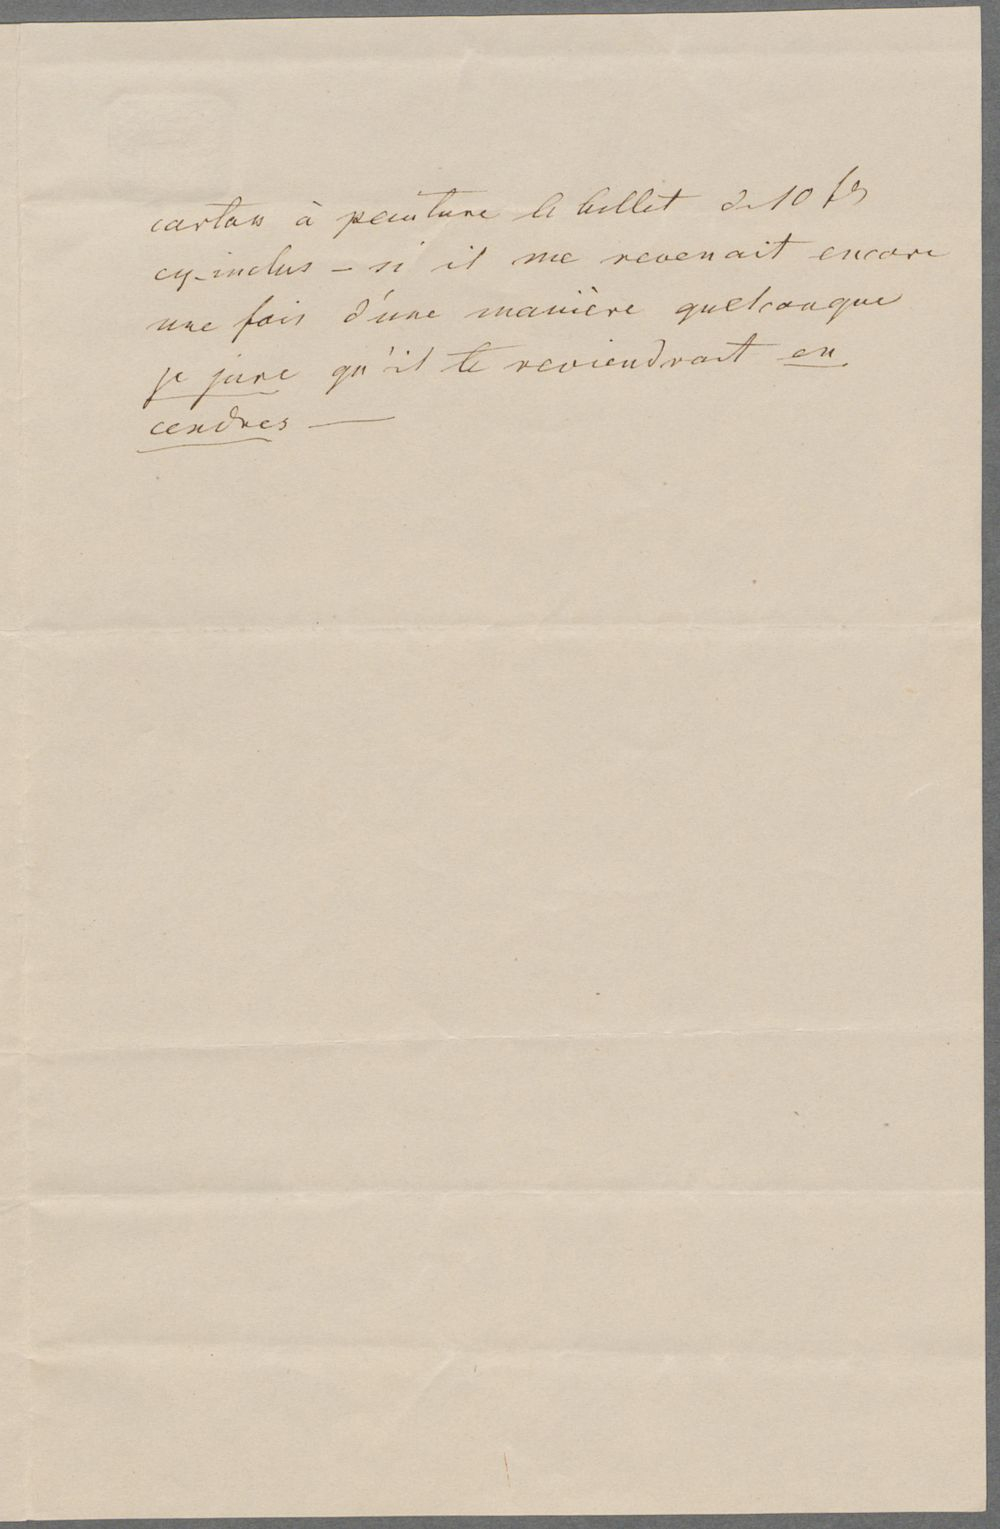 cartons à peinture le billet de 10 frs
cy-inclus – si il me revenait encore
une fois d'une manière quelconque
je jure qu'il te reviendrait en
cendres —